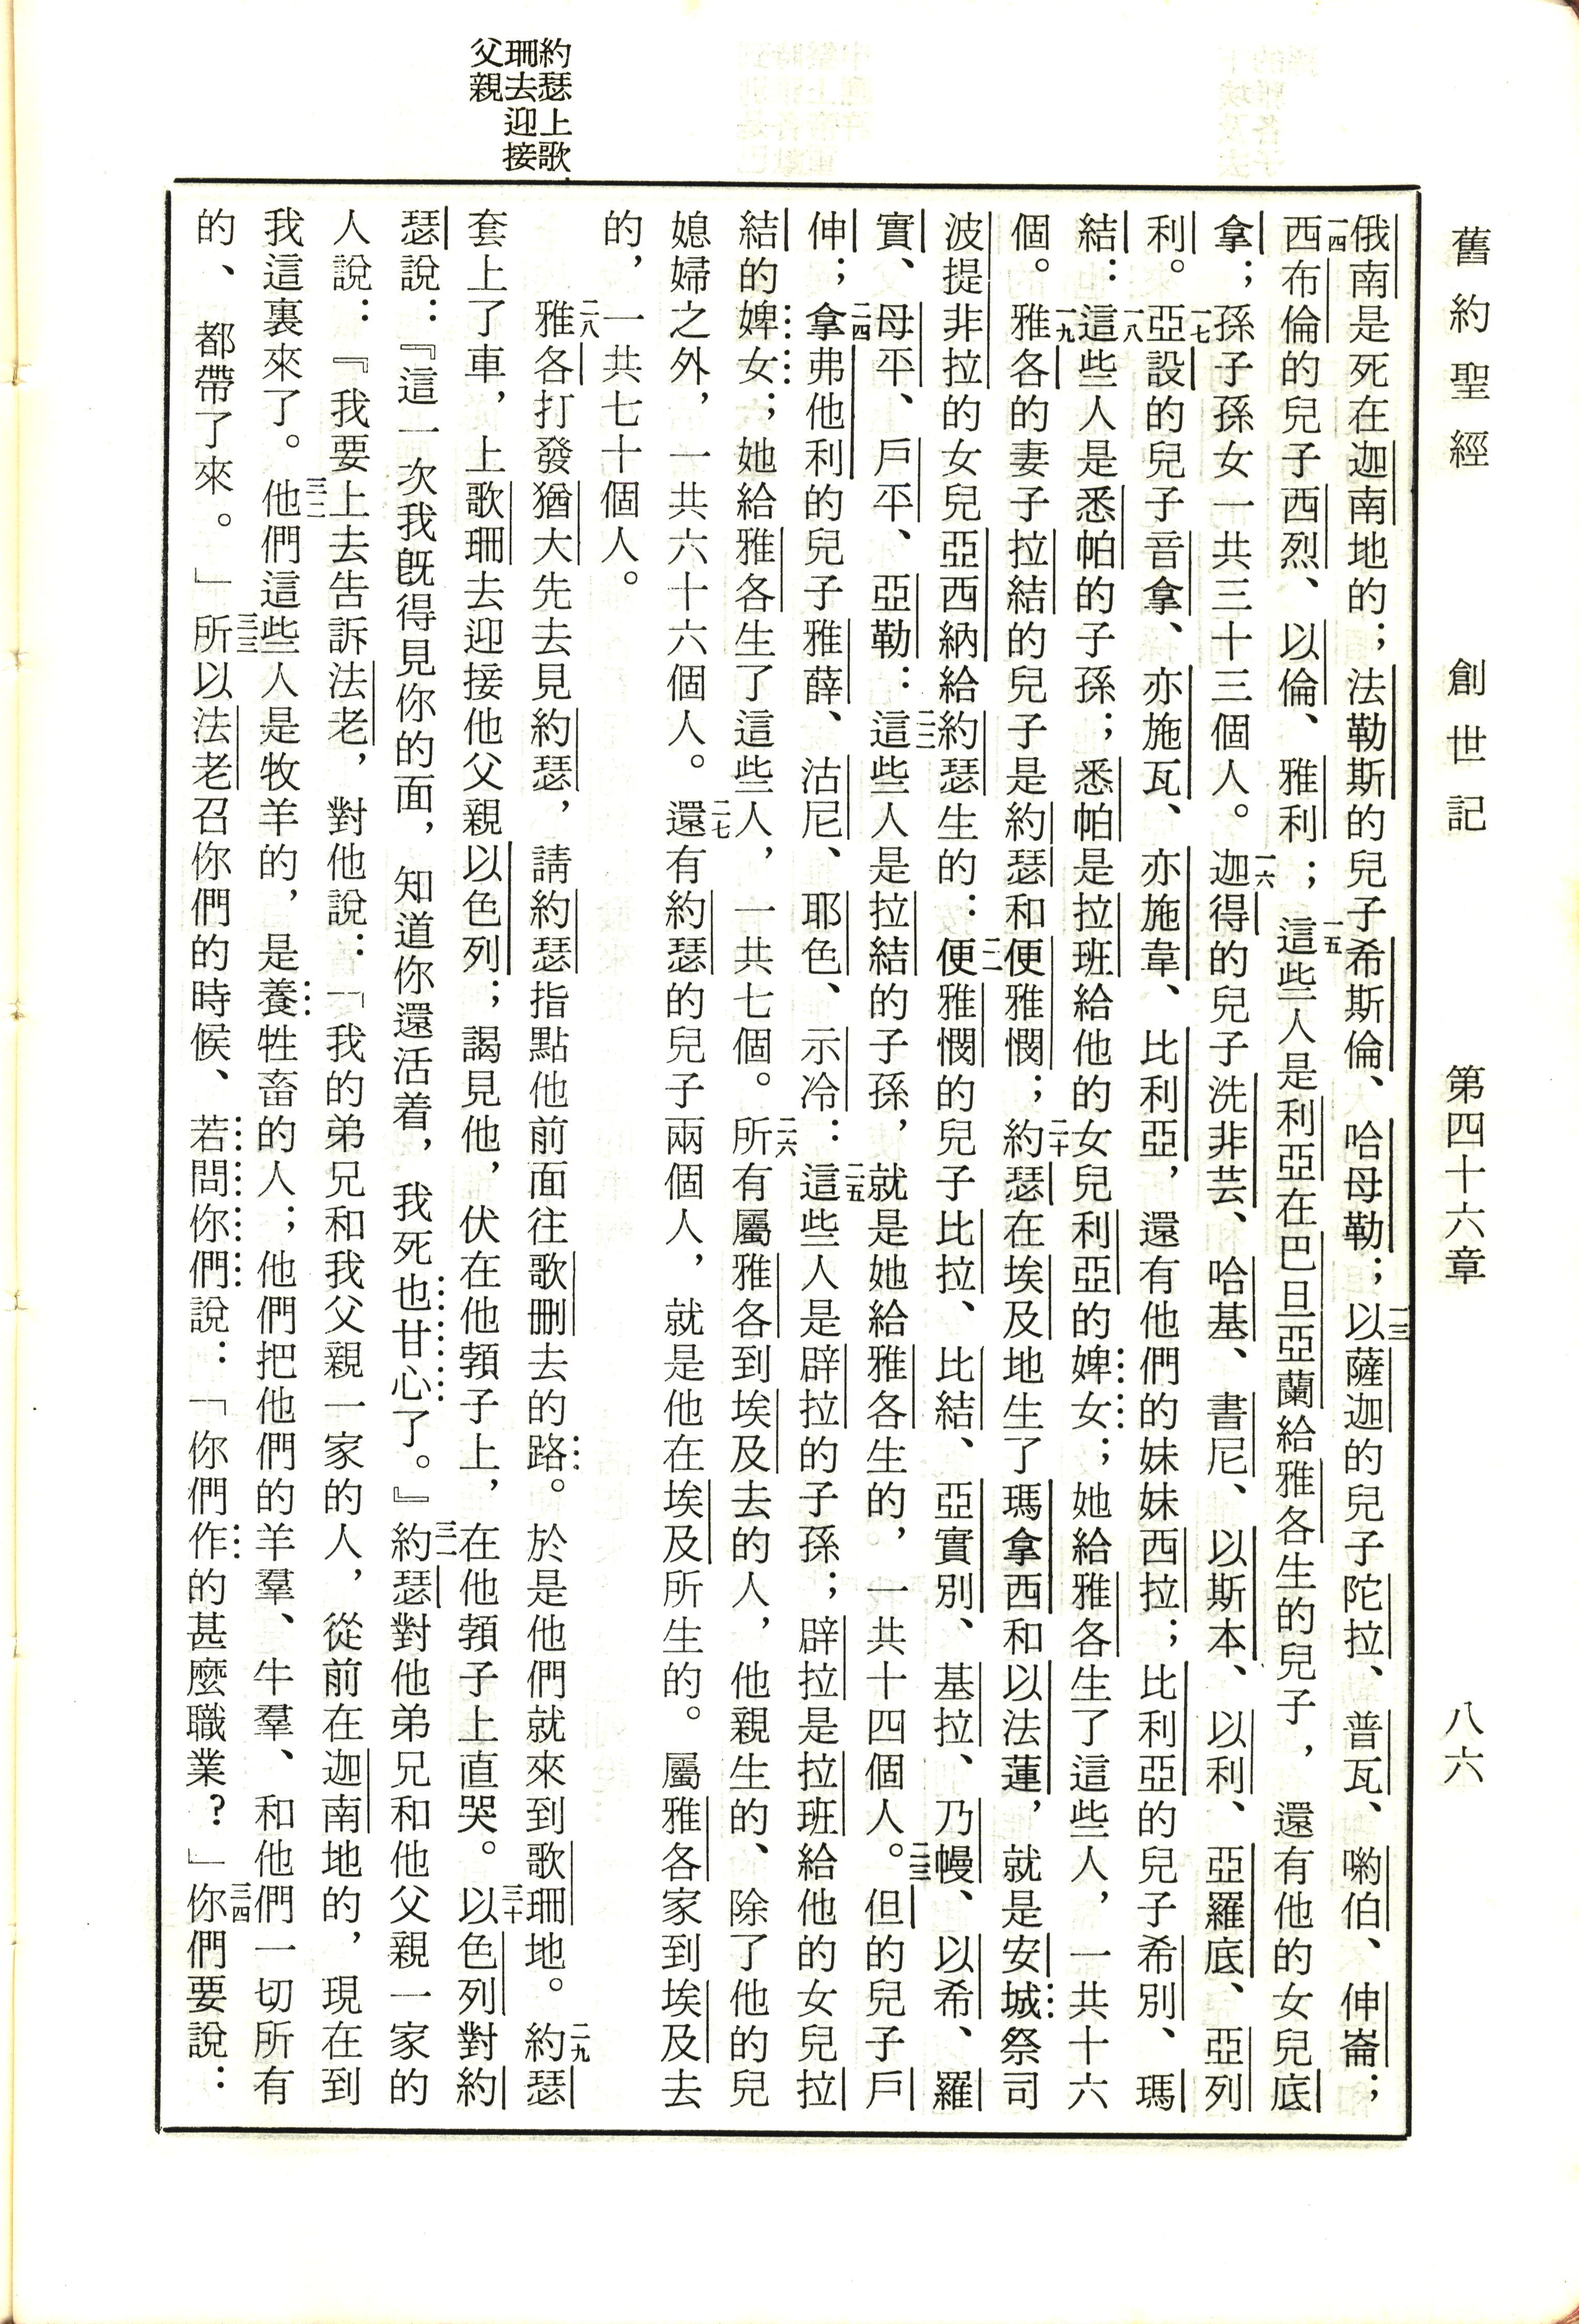 舊約聖經 創世記 第四十六章 八六
約瑟上歌
珊去迎接
父親
俄南是死在迦南地的；法勒斯的兒子希斯倫、哈母勒；一三以薩迦的兒子陀拉、普瓦、喲伯、伸崙；
一四西布倫的兒子西烈、以倫、雅利；一五這些人是利亞在巴旦亞蘭給雅各生的兒子，還有他的女兒底
拿；孫子孫女一共三十三個人。一六迦得的兒子洗非芸、哈基、書尼、以斯本、以利、亞羅底、亞列
利。一七亞設的兒子音拿、亦施瓦、亦施韋、比利亞，還有他們的妹妹西拉；比利亞的兒子希別、瑪
結：一八這些人是悉帕的子孫；悉帕是拉班給他的女兒利亞的婢女；她給雅各生了這些人，一共十六
個。一九雅各的妻子拉結的兒子是約瑟和便雅憫；二十約瑟在埃及地生了瑪拿西和以法蓮，就是安城祭司
波提非拉的女兒亞西納給約瑟生的：二一便雅憫的兒子比拉、比結、亞實別、基拉、乃幔、以希、羅
實、母平、戶平、亞勒：二二這些人是拉結的子孫，就是她給雅各生的，一共十四個人。二三但的兒子戶
伸；二四拿弗他利的兒子雅薛、沽尼、耶色、示冷：二五這些人是辟拉的子孫；辟拉是拉班給他的女兒拉
結的婢女；她給雅各生了這些人，一共七個。二六所有屬雅各到埃及去的人，他親生的、除了他的兒
媳婦之外，一共六十六個人。二七還有約瑟的兒子兩個人，就是他在埃及所生的。屬雅各家到埃及去
的，一共七十個人。
二八雅各打發猶大先去見約瑟，請約瑟指點他前面往歌刪去的路。於是他們就來到歌珊地。二九約瑟
套上了車，上歌珊去迎接他父親以色列；謁見他，伏在他頸子上，在他頸子上直哭。三十以色列對約
瑟說：『這一次我既得見你的面，知道你還活着，我死也甘心了。』三一約瑟對他弟兄和他父親一家的
人說：『我要上去告訴法老，對他說：「我的弟兄和我父親一家的人，從前在迦南地的，現在到
我這裏來了。三二他們這些人是牧羊的，是養牲畜的人；他們把他們的羊羣、牛羣、和他們一切所有
的、都帶了來。」三三所以法老召你們的時候、若問你們說：「你們作的甚麼職業？」三四你們要說：